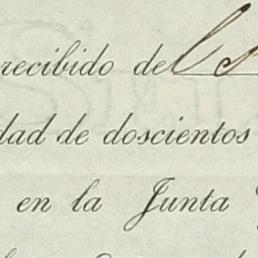 recibido de
dad de doscientos
en la Junta